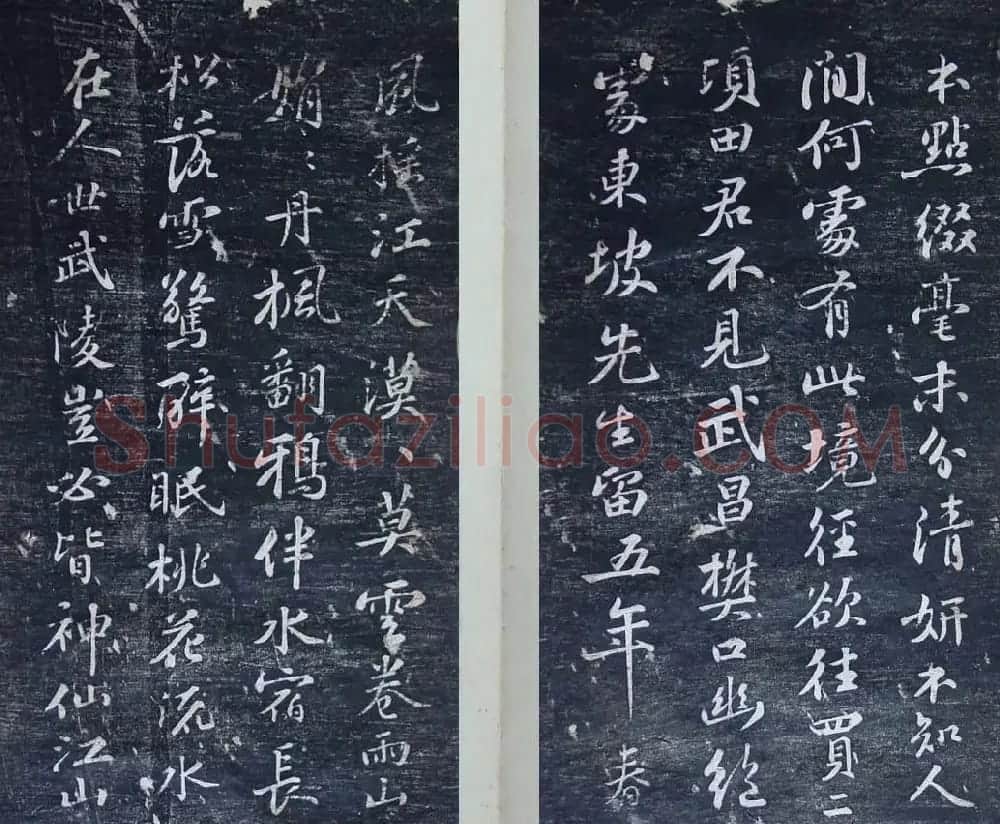 本點綴毫末分清妍不知人
間何處有此境徑欲往買二
頃田君不見武昌樊口幽絕
處東坡先生留五年春
風搖江天漠〻莫雲卷雨山
娟〻丹楓翻鴉伴水宿長
松落雪驚醉眠桃花流水
在人世武陵豈必皆神仙江山
Shufaziliao.COM